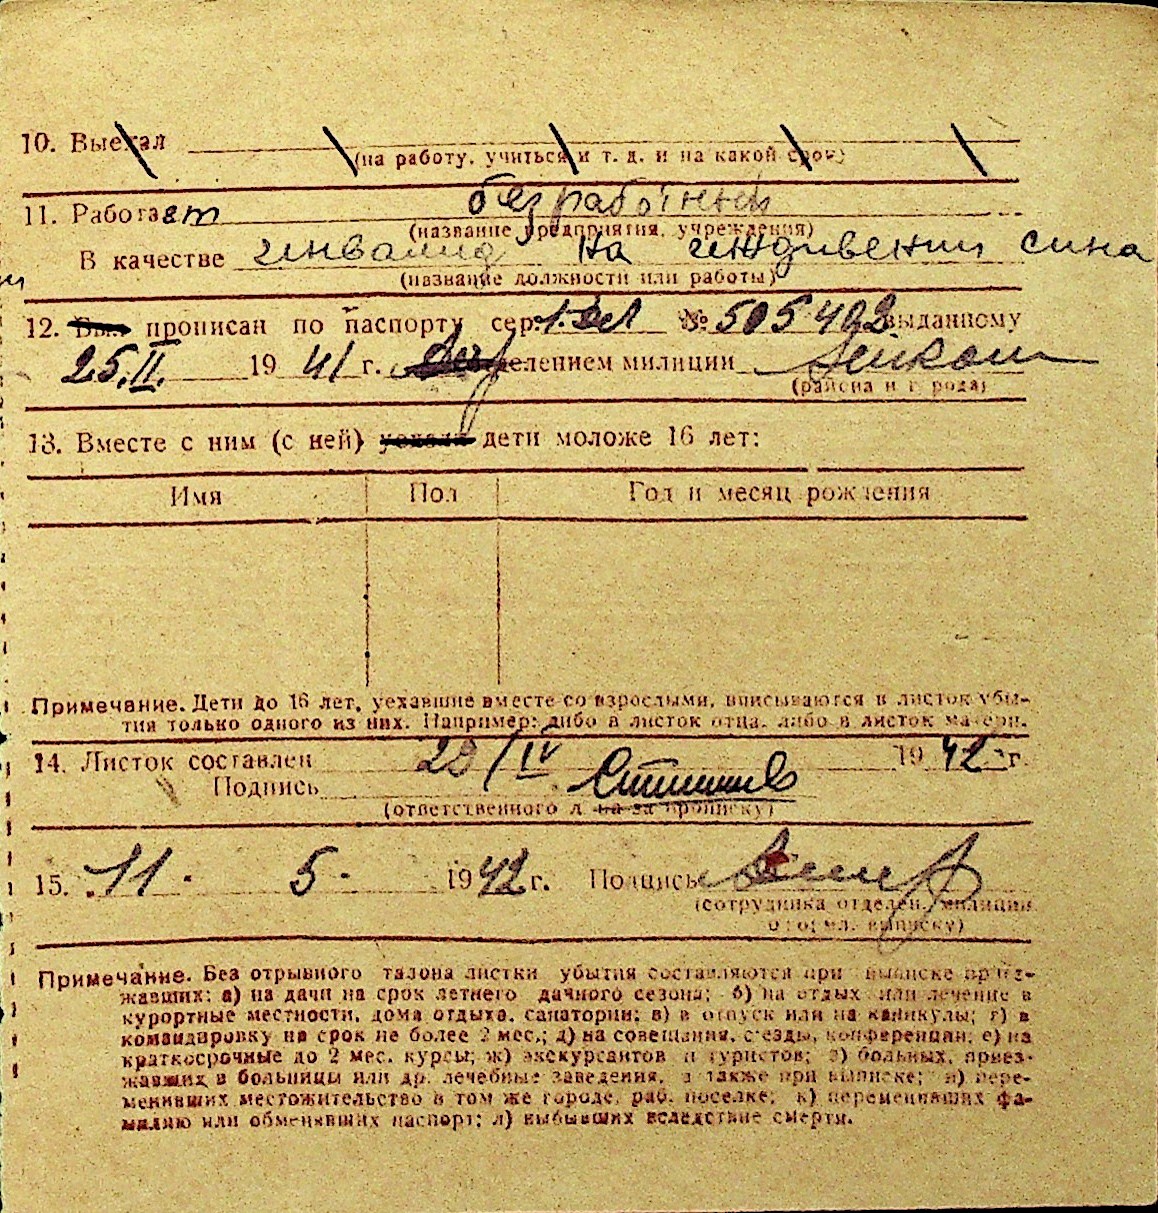 10. Выехал
(на работу, учиться и т. д. и на какой срок)
11. Работает безработный
(название предприятия, учреждения)
В качестве инвалид на иждивении сина
(название должности или работы)
12. прописан по паспорту сер. № 505492 выданному
25.II. 1941 г. отделением милиции
(района и города)
13. Вместе с ним (с ней) уехали дети моложе 16 лет:
Имя Пол Год и месяц рождения
Примечание. Дети до 16 лет, уехавшие вместе со взрослыми, вписываются в листок убы-
тия только одного из них. Например: либо в листок отца, либо в листок матери.
14. Листок составлен 20/IV 1942 г.
Подпись
(ответственного за прописку)
15. 11. 5. 1942 г. Подпись
(сотрудника отделен. милиции
оформл. выписку)
Примечание. Без отрывного талона листки убытия составляются при выписке приез-
жавших: а) на дачи на срок летнего дачного сезона; б) на отдых или лечение в
курортные местности, дома отдыха, санатории; в) в отпуск или на каникулы; г) в
командировку на срок не более 2 мес.; д) на совещания, съезды, конференции; е) на
краткосрочные до 2 мес. курсы; ж) экскурсантов и туристов; з) больных, приез-
жавших в больницы или др. лечебные заведения, а также при выписке; и) пере-
менивших местожительство в том же городе, раб. поселке; к) переменивших фа-
милию или обменявших паспорт; л) выбывших вследствие смерти.